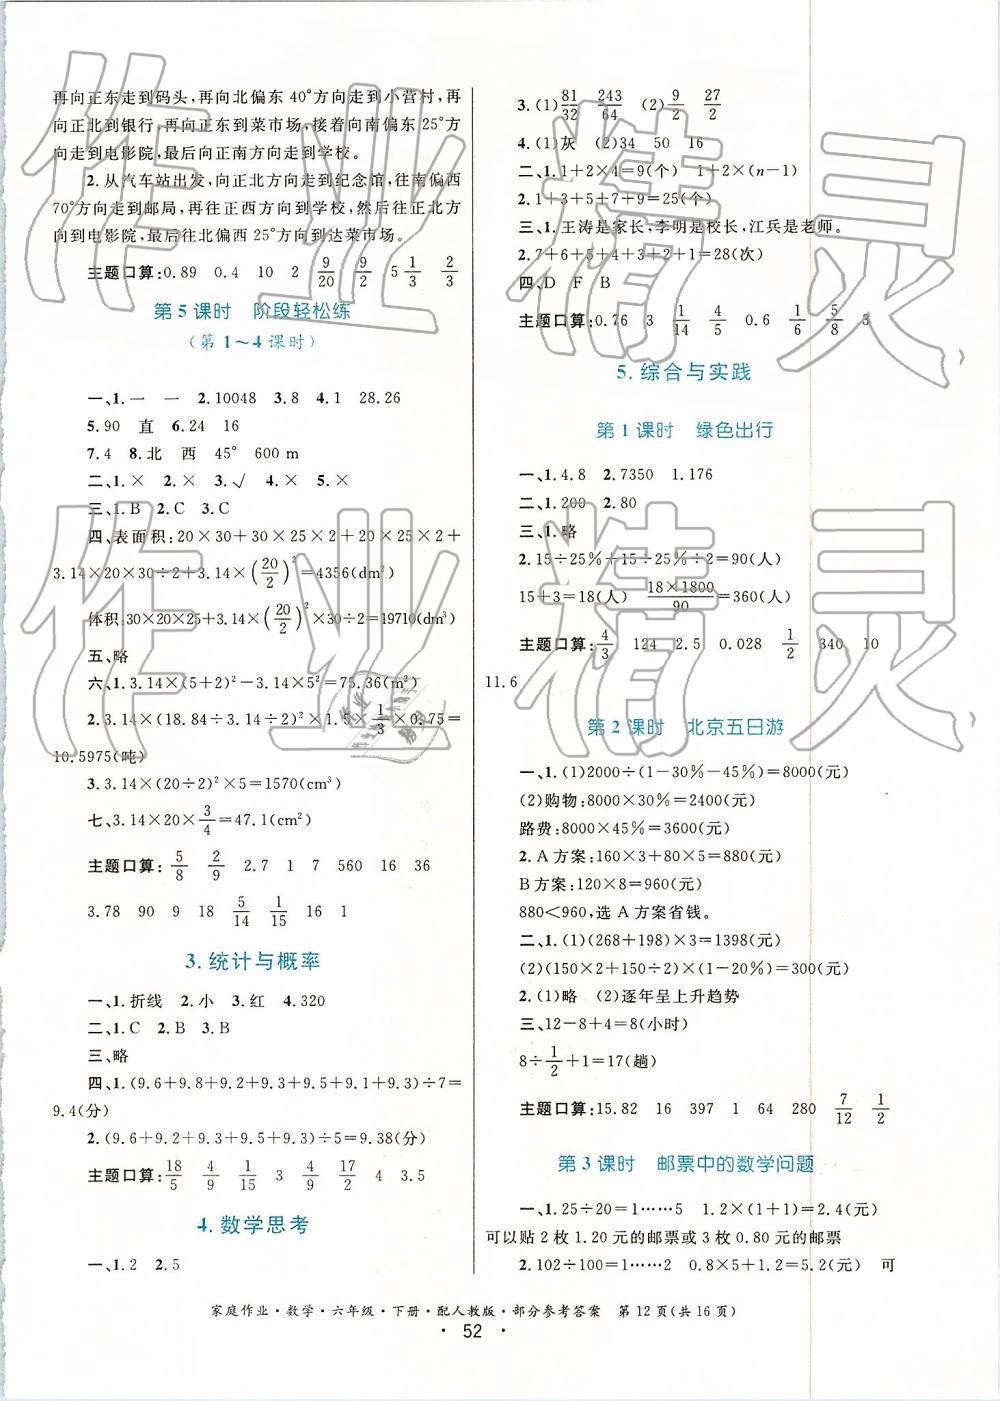 再向正东走到码头,再向北偏东 40°方向走到小营村,再
向正北到银行,再向正东到菜市场,接着向南偏东 25°方
向走到电影院,最后向正南方向走到学校。
2. 从汽车站出发,向正北方向走到纪念馆,往南偏西
70°方向走到邮局,再往正西方向到学校,然后往正北方
向到电影院,最后往北偏西 25°方向到达菜市场。
主题口算:0.89 0.4 10 2 9/20 9/2 5 1/3 2/3
第 5 课时 阶段轻松练
(第 1~4 课时)
一、1. 一 一 2. 10048 3. 8 4. 1 28.26
5. 90 直 6. 24 16
7. 4 8. 北 西 45° 600 m
二、1. × 2. × 3. √ 4. × 5. ×
三、1. B 2. C 3. C
四、表面积:20×30+30×25×2+20×25×2+
3.14×20×30÷2+3.14×(20/2)²=4356(dm²)
体积:30×20×25+3.14×(20/2)²×30÷2=19710(dm³)
五、略
六、1. 3.14×(5+2)²-3.14×5²=75.36(m²)
2. 3.14×(18.84÷3.14÷2)²×1.5×1/3×0.75=
10.5975(吨)
3. 3.14×(20÷2)²×5=1570(cm³)
七、3.14×20×3/4=47.1(cm²)
主题口算:5/8 2/9 2.7 1 7 560 16 36
3.78 90 9 18 5/14 1/15 16 1
3. 统计与概率
一、1. 折线 2. 小 3. 红 4. 320
二、1. C 2. B 3. B
三、略
四、1. (9.6+9.8+9.2+9.3+9.5+9.1+9.3)÷7=
9.4(分)
2. (9.6+9.2+9.3+9.5+9.3)÷5=9.38(分)
主题口算:18/5 4/9 4/15 3 4/9 17/2 4 3.5
4. 数学思考
一、1. 2 2. 5
3. (1)81/32 243/64 (2)9/2 27/2
4. (1)灰 (2)34 50 16
二、1. 1+2×4=9(个) 1+2×(n-1)
2. 1+3+5+7+9=25(个)
三、1. 王涛是家长,李明是校长,江兵是老师。
2. 7+6+5+4+3+2+1=28(次)
四、D F B
主题口算:0.76 3 1/14 4/5 0.6 1/6 5/8 3
5. 综合与实践
第 1 课时 绿色出行
一、1. 4.8 2. 7350 1.176
二、1. 200 2. 80
三、1. 略
2. 15÷25%+15÷25%÷2=90(人)
15+3=18(人) 18×1800/90=360(人)
主题口算:4/3 124 2.5 0.028 1/2 340 10
11.6
第 2 课时 北京五日游
一、1. (1)2000÷(1-30%-45%)=8000(元)
(2)购物:8000×30%=2400(元)
路费:8000×45%=3600(元)
2. A 方案:160×3+80×5=880(元)
B 方案:120×8=960(元)
880<960,选 A 方案省钱。
二、1. (1)(268+198)×3=1398(元)
(2)(150×2+150÷2)×(1-20%)=300(元)
2. (1)略 (2)逐年呈上升趋势
三、12-8+4=8(小时)
8÷1/2+1=17(趟)
主题口算:15.82 16 397 1 64 280 7/12 1/2
第 3 课时 邮票中的数学问题
一、1. 25÷20=1……5 1.2×(1+1)=2.4(元)
可以贴 2 枚 1.20 元的邮票或 3 枚 0.80 元的邮票
2. 102÷100=1……2 0.8×5+1.2=5.2(元) 可
家庭作业·数学·六年级·下册·配人教版·部分参考答案 第 12 页(共 16 页)
· 52 ·
作业精灵
作业精灵